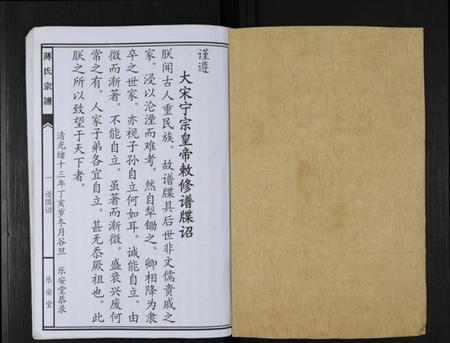 谨遵
大宋宁宗皇帝敕修谱牒诏
朕闻古人重民族。故谱牒具后世非文儒贵戚之
家。浸以沦湮而难考。然自犁锄之。卿相降为隶
卒之世家。亦视子孙自立何如耳。诚能自立。由
微而渐著。不能自立。虽著而渐微。盛衰兴废何
常之有。人家子弟各宜自立。甚无忝厥祖也。此
朕之所以致望于天下者。
清光绪十三年丁亥岁冬月谷旦 乐安堂恭录
蒋氏宗谱
一 谱牒诏
乐安堂